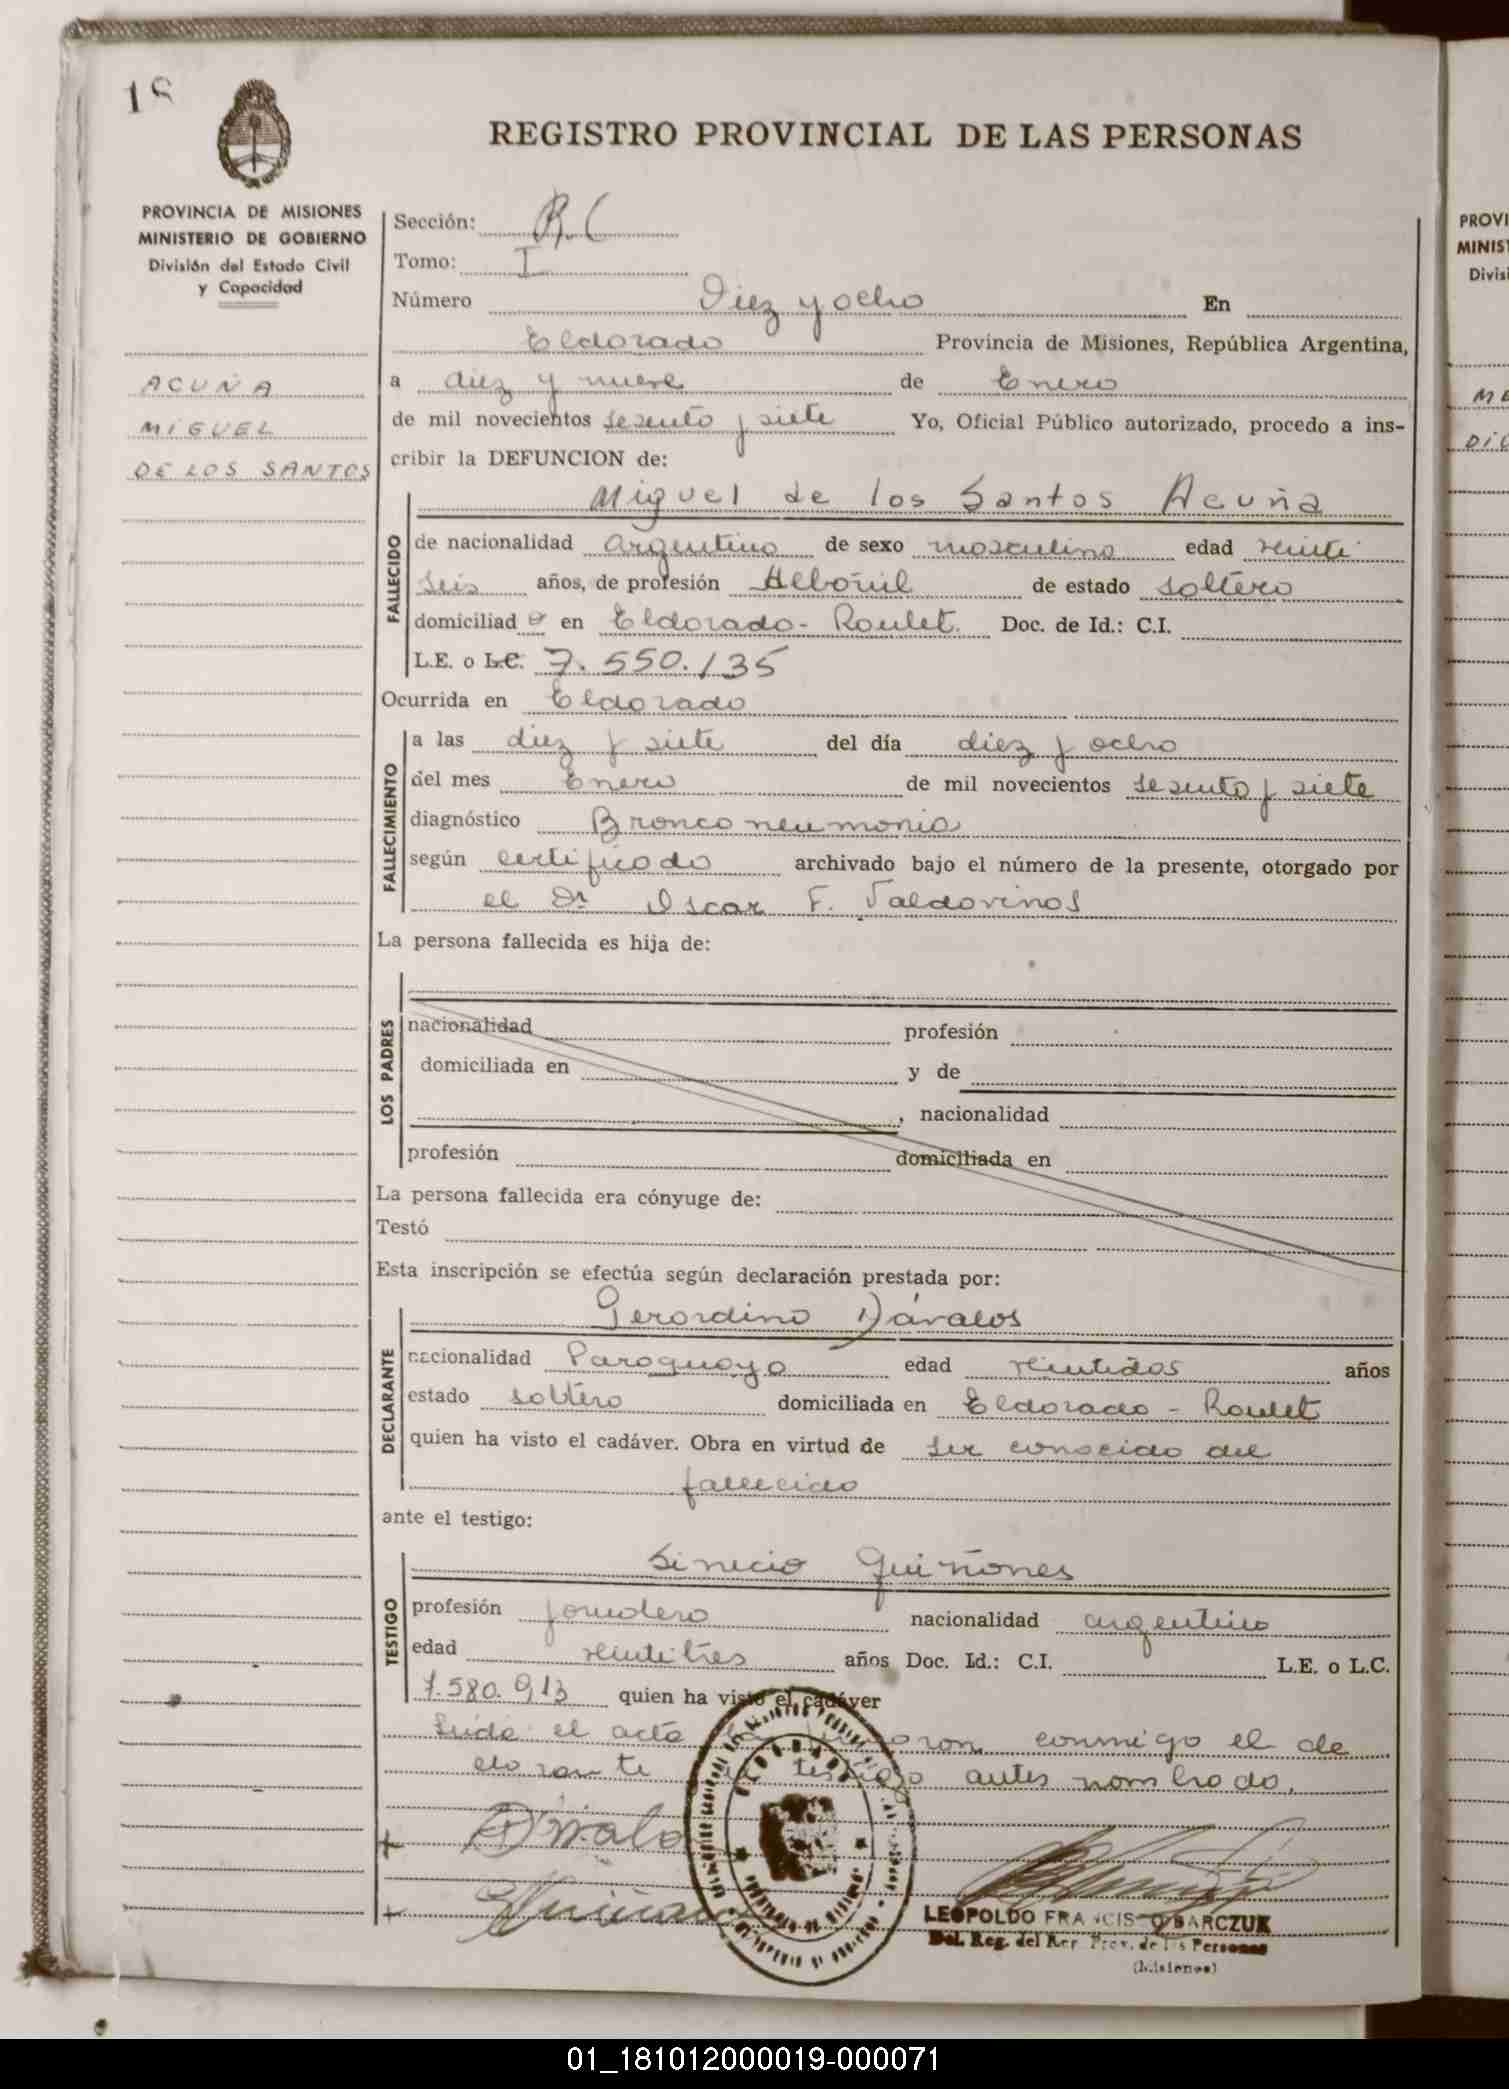 18
REGISTRO PROVINCIAL DE LAS PERSONAS
PROVINCIA DE MISIONES
MINISTERIO DE GOBIERNO
División del Estado Civil
y Capacidad
ACUÑA
MIGUEL
DE LOS SANTOS
Sección: R.C
Tomo: I
Número Diez y ocho En
Eldorado Provincia de Misiones, República Argentina,
a diez y nueve de Enero
de mil novecientos sesenta y siete Yo, Oficial Público autorizado, procedo a ins-
cribir la DEFUNCION de:
Miguel de los Santos Acuña
FALLECIDO
de nacionalidad argentino de sexo masculino edad veinti
seis años, de profesión Albañil de estado soltero
domiciliad o en Eldorado - Roulet. Doc. de Id.: C.I.
L.E. o L.C. 7.550.135
Ocurrida en Eldorado
FALLECIMIENTO
a las diez y siete del día diez y ocho
del mes Enero de mil novecientos sesenta y siete
diagnóstico Bronconeumonia
según certificado archivado bajo el número de la presente, otorgado por
el Dr Oscar F. Valdovinos
La persona fallecida es hija de:
LOS PADRES
nacionalidad profesión
domiciliada en y de
, nacionalidad
profesión domiciliada en
La persona fallecida era cónyuge de:
Testó
Esta inscripción se efectúa según declaración prestada por:
Gerardino Dávalos
DECLARANTE
nacionalidad Paraguaya edad veintidos años
estado soltero domiciliada en Eldorado - Roulet
quien ha visto el cadáver. Obra en virtud de ser conocido del
fallecido
ante el testigo:
Sinecio Quiñones
TESTIGO
profesión jornalero nacionalidad argentino
edad veintitres años Doc. Id.: C.I. L.E. o L.C.
7.580.913 quien ha visto el cadáver
Leida el acta la firmaron conmigo el de
clarante y el testigo antes nombrado.
ELDORADO
LEOPOLDO FRANCISCO BARCZUK
Del. Reg. del Reg. Prov. de las Personas
(Misiones)
PROVI
MINIST
Divisi
ME
DIC
01_181012000019-000071